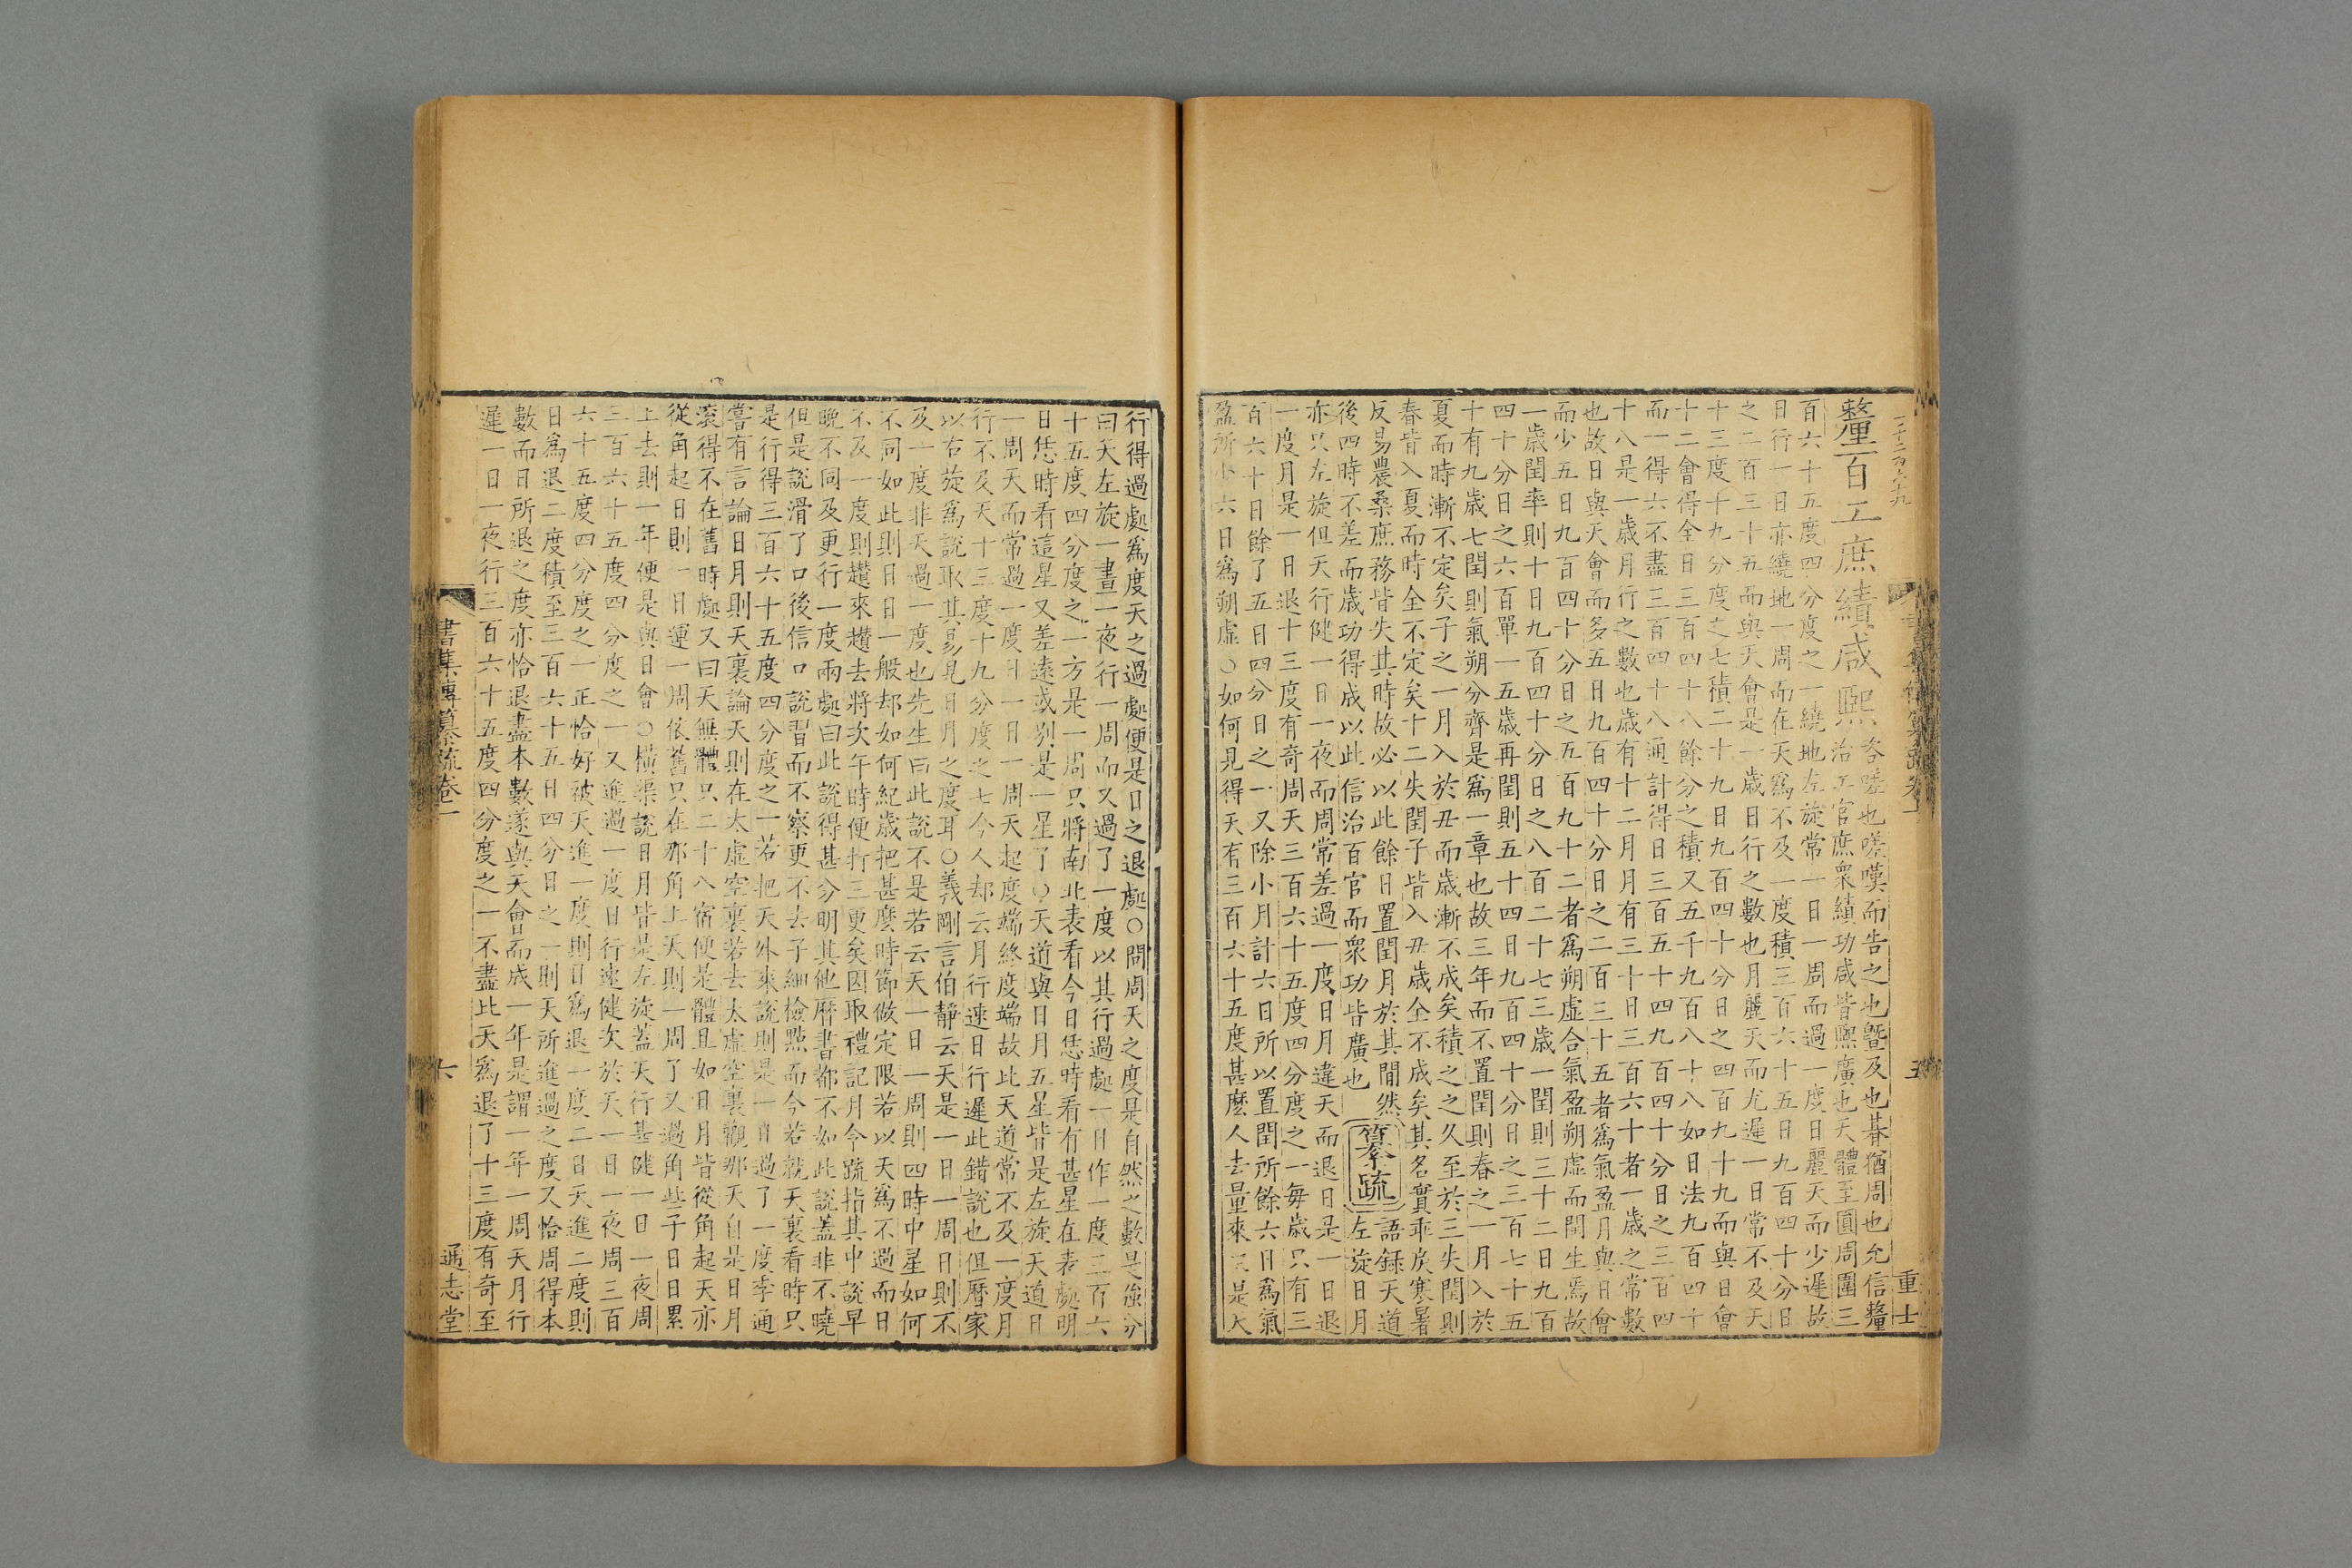 釐百工庶績咸熙
咨嗟也嗟嘆而告之也曁及也朞猶周也允信釐
治工官庶衆績功咸皆熙廣也天體至圓周圍三
百六十五度四分度之一繞地左旋常一日一周而過一度日麗天而少遲故
日行一日亦繞地一周而在天爲不及一度積三百六十五日九百四十分日
之二百三十五而與天會是一歲日行之數也月麗天而尤遲一日常不及天
十三度十九分度之七積二十九日九百四十分日之四百九十九而與日會
十二會得全日三百四十八餘分之積又五千九百八十八如日法九百四十
而一得六不盡三百四十八通計得日三百五十四九百四十分日之三百四
十八是一歲月行之數也歲有十二月月有三十日三百六十者一歲之常數
也故日與天會而多五日九百四十分日之二百三十五者爲氣盈月與日會
而少五日九百四十分日之五百九十二者爲朔虛合氣盈朔虛而閏生焉故
一歲閏率則十日九百四十分日之八百二十七三歲一閏則三十二日九百
四十分日之六百單一五歲再閏則五十四日九百四十分日之三百七十五
十有九歲七閏則氣朔分齊是爲一章也故三年而不置閏則春之一月入於
夏而時漸不定矣子之一月入於丑而歲漸不成矣積之之久至於三失閏則
春皆入夏而時全不定矣十二失閏子皆入丑歲全不成矣其名實乖戾寒暑
反易農桑庶務皆失其時故必以此餘日置閏月於其間然
後四時不差而歲功得成以此信治百官而衆功皆廣也
纂疏
語錄天道
左旋日月
亦只左旋但天行健一日一夜而周常差過一度日月違天而退日是一日退
一度月是一日退十三度有奇周天三百六十五度四分度之一每歲只有三
百六十日餘了五日四分日之一又除小月計六日所以置閏所餘六日爲氣
盈所少六日爲朔虛○如何見得天有三百六十五度甚麽人去量來只是天
書集傳纂疏卷一
五
重士
行得過處爲度天之過處便是日之退處○問周天之度是自然之數是强分
曰天左旋一晝一夜行一周而又過了一度以其行過處一日作一度三百六
十五度四分度之一方是一周只將南北表看今日恁時看有甚星在表處明
日恁時看這星又差遠或别是一星了○天道與日月五星皆是左旋天道日
一周天而常過一度日一日一周天起度端終度端故此天道常不及一度月
行不及天十三度十九分度之七今人却云月行速日行遲此錯說也但曆家
以右旋爲說取其易見日月之度耳○義剛言伯靜云天是一日一周日則不
及一度非天過一度也先生曰此說不是若云天一日一周則四時中星如何
不同如此則日日一般却如何紀歲把甚麽時節做定限若以天爲不過而日
不及一度則趲來趲去將次午時便打三更矣因取禮記月令疏指其中說早
晚不同及更行一度兩處曰此說得甚分明其他曆書都不如此說蓋非不曉
但是說滑了口後信口說習而不察更不去子細檢點而今若就天裏看時只
是行得三百六十五度四分度之一若把天外來說則是一日過了一度季通
嘗有言論日月則天裏論天則在太虛空裏若去太虛空裏觀那天自是日月
滾得不在舊時處又曰天無體只二十八宿便是體且如日月皆從角起天亦
從角起日則一日運一周依舊只在那角上天則一周了又過角些子日日累
上去則一年便是與日會○橫渠說日月皆是左旋蓋天行甚健一日一夜周
三百六十五度四分度之一又進過一度日行速健次於天一日一夜周三百
六十五度四分度之一正恰好被天進一度則日爲退一度二日天進二度則
日爲退二度積至三百六十五日四分日之一則天所進過之度又恰周得本
數而日所退之度亦恰退盡本數遂與天會而成一年是謂一年一周天月行
遲一日一夜行三百六十五度四分度之一不盡此天爲退了十三度有奇至
書集傳纂疏卷一
六
通志堂